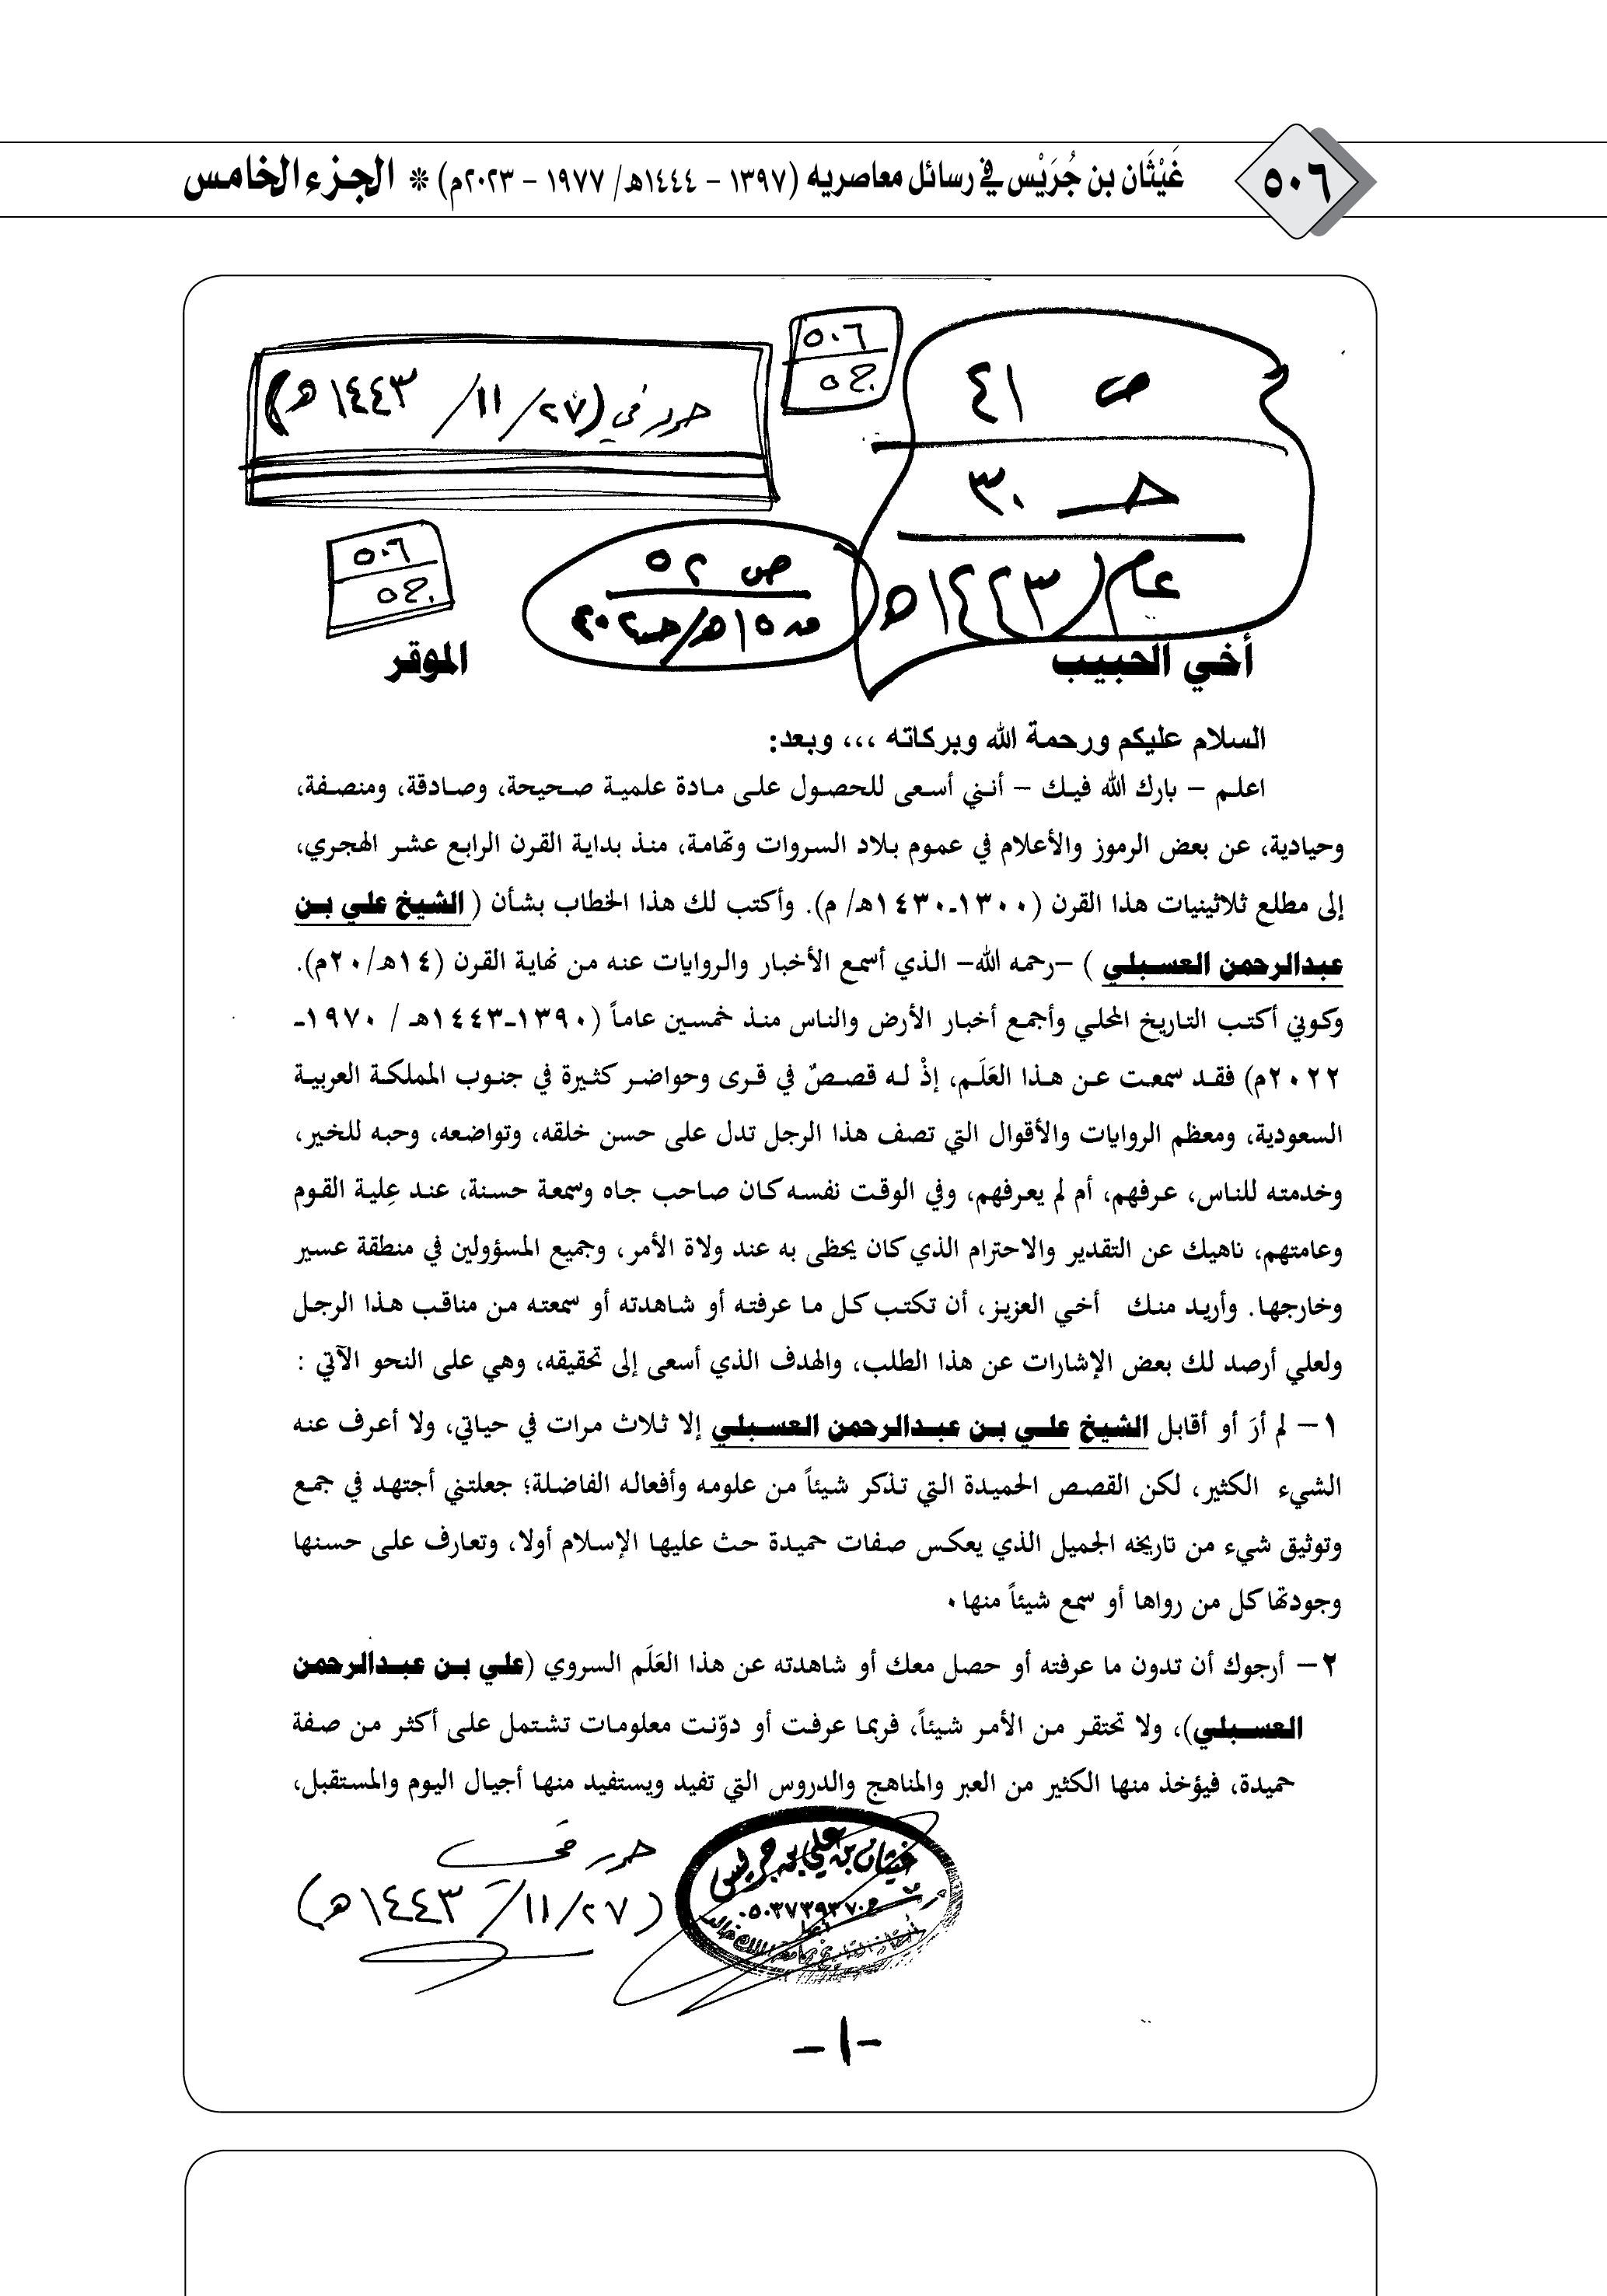 ٥٠٦
غَيْثَان بن جُرَيْس في رسائل معاصريه (١٣٩٧ - ١٤٤٤هـ/ ١٩٧٧ - ٢٠٢٣م) * الجزء الخامس
ص ٤١
حـ ٣٠
عام ١٤٢٣هـ
٥٠٦
ج٥
حرر في (٢٧/ ١١/ ١٤٤٣هـ)
ص ٥٢
٥٠٦
ج٥
أخي الحبيب الموقر
السلام عليكم ورحمة الله وبركاته ،،، وبعد:
اعلم – بارك الله فيك – أنني أسعى للحصول على مادة علمية صحيحة، وصادقة، ومنصفة،
وحيادية، عن بعض الرموز والأعلام في عموم بلاد السروات وتهامة، منذ بداية القرن الرابع عشر الهجري،
إلى مطلع ثلاثينيات هذا القرن (١٣٠٠-١٤٣٠هـ/ م). وأكتب لك هذا الخطاب بشأن (الشيخ علي بن
عبدالرحمن العسبلي ) –رحمه الله– الذي أسمع الأخبار والروايات عنه من نهاية القرن (١٤هـ/٢٠م).
وكوني أكتب التاريخ المحلي وأجمع أخبار الأرض والناس منذ خمسين عاماً (١٣٩٠-١٤٤٣هـ / ١٩٧٠-
٢٠٢٢م) فقد سمعت عن هذا العَلَم، إذْ له قصصٌ في قرى وحواضر كثيرة في جنوب المملكة العربية
السعودية، ومعظم الروايات والأقوال التي تصف هذا الرجل تدل على حسن خلقه، وتواضعه، وحبه للخير،
وخدمته للناس، عرفهم، أم لم يعرفهم، وفي الوقت نفسه كان صاحب جاه وسمعة حسنة، عند عِلية القوم
وعامتهم، ناهيك عن التقدير والاحترام الذي كان يحظى به عند ولاة الأمر، وجميع المسؤولين في منطقة عسير
وخارجها. وأريد منك أخي العزيز، أن تكتب كل ما عرفته أو شاهدته أو سمعته من مناقب هذا الرجل
ولعلي أرصد لك بعض الإشارات عن هذا الطلب، والهدف الذي أسعى إلى تحقيقه، وهي على النحو الآتي :
١– لم أرَ أو أقابل الشيخ علي بن عبدالرحمن العسبلي إلا ثلاث مرات في حياتي، ولا أعرف عنه
الشيء الكثير، لكن القصص الحميدة التي تذكر شيئاً من علومه وأفعاله الفاضلة؛ جعلتني أجتهد في جمع
وتوثيق شيء من تاريخه الجميل الذي يعكس صفات حميدة حث عليها الإسلام أولا، وتعارف على حسنها
وجودتها كل من رواها أو سمع شيئاً منها٠
٢– أرجوك أن تدون ما عرفته أو حصل معك أو شاهدته عن هذا العَلَم السروي (علي بن عبدالرحمن
العسبلي)، ولا تحتقر من الأمر شيئاً، فربما عرفت أو دوّنت معلومات تشتمل على أكثر من صفة
حميدة، فيؤخذ منها الكثير من العبر والمناهج والدروس التي تفيد ويستفيد منها أجيال اليوم والمستقبل،
غيثان بن علي بن جريس
حرر في
(٢٧/١١/١٤٤٣هـ)
-١-